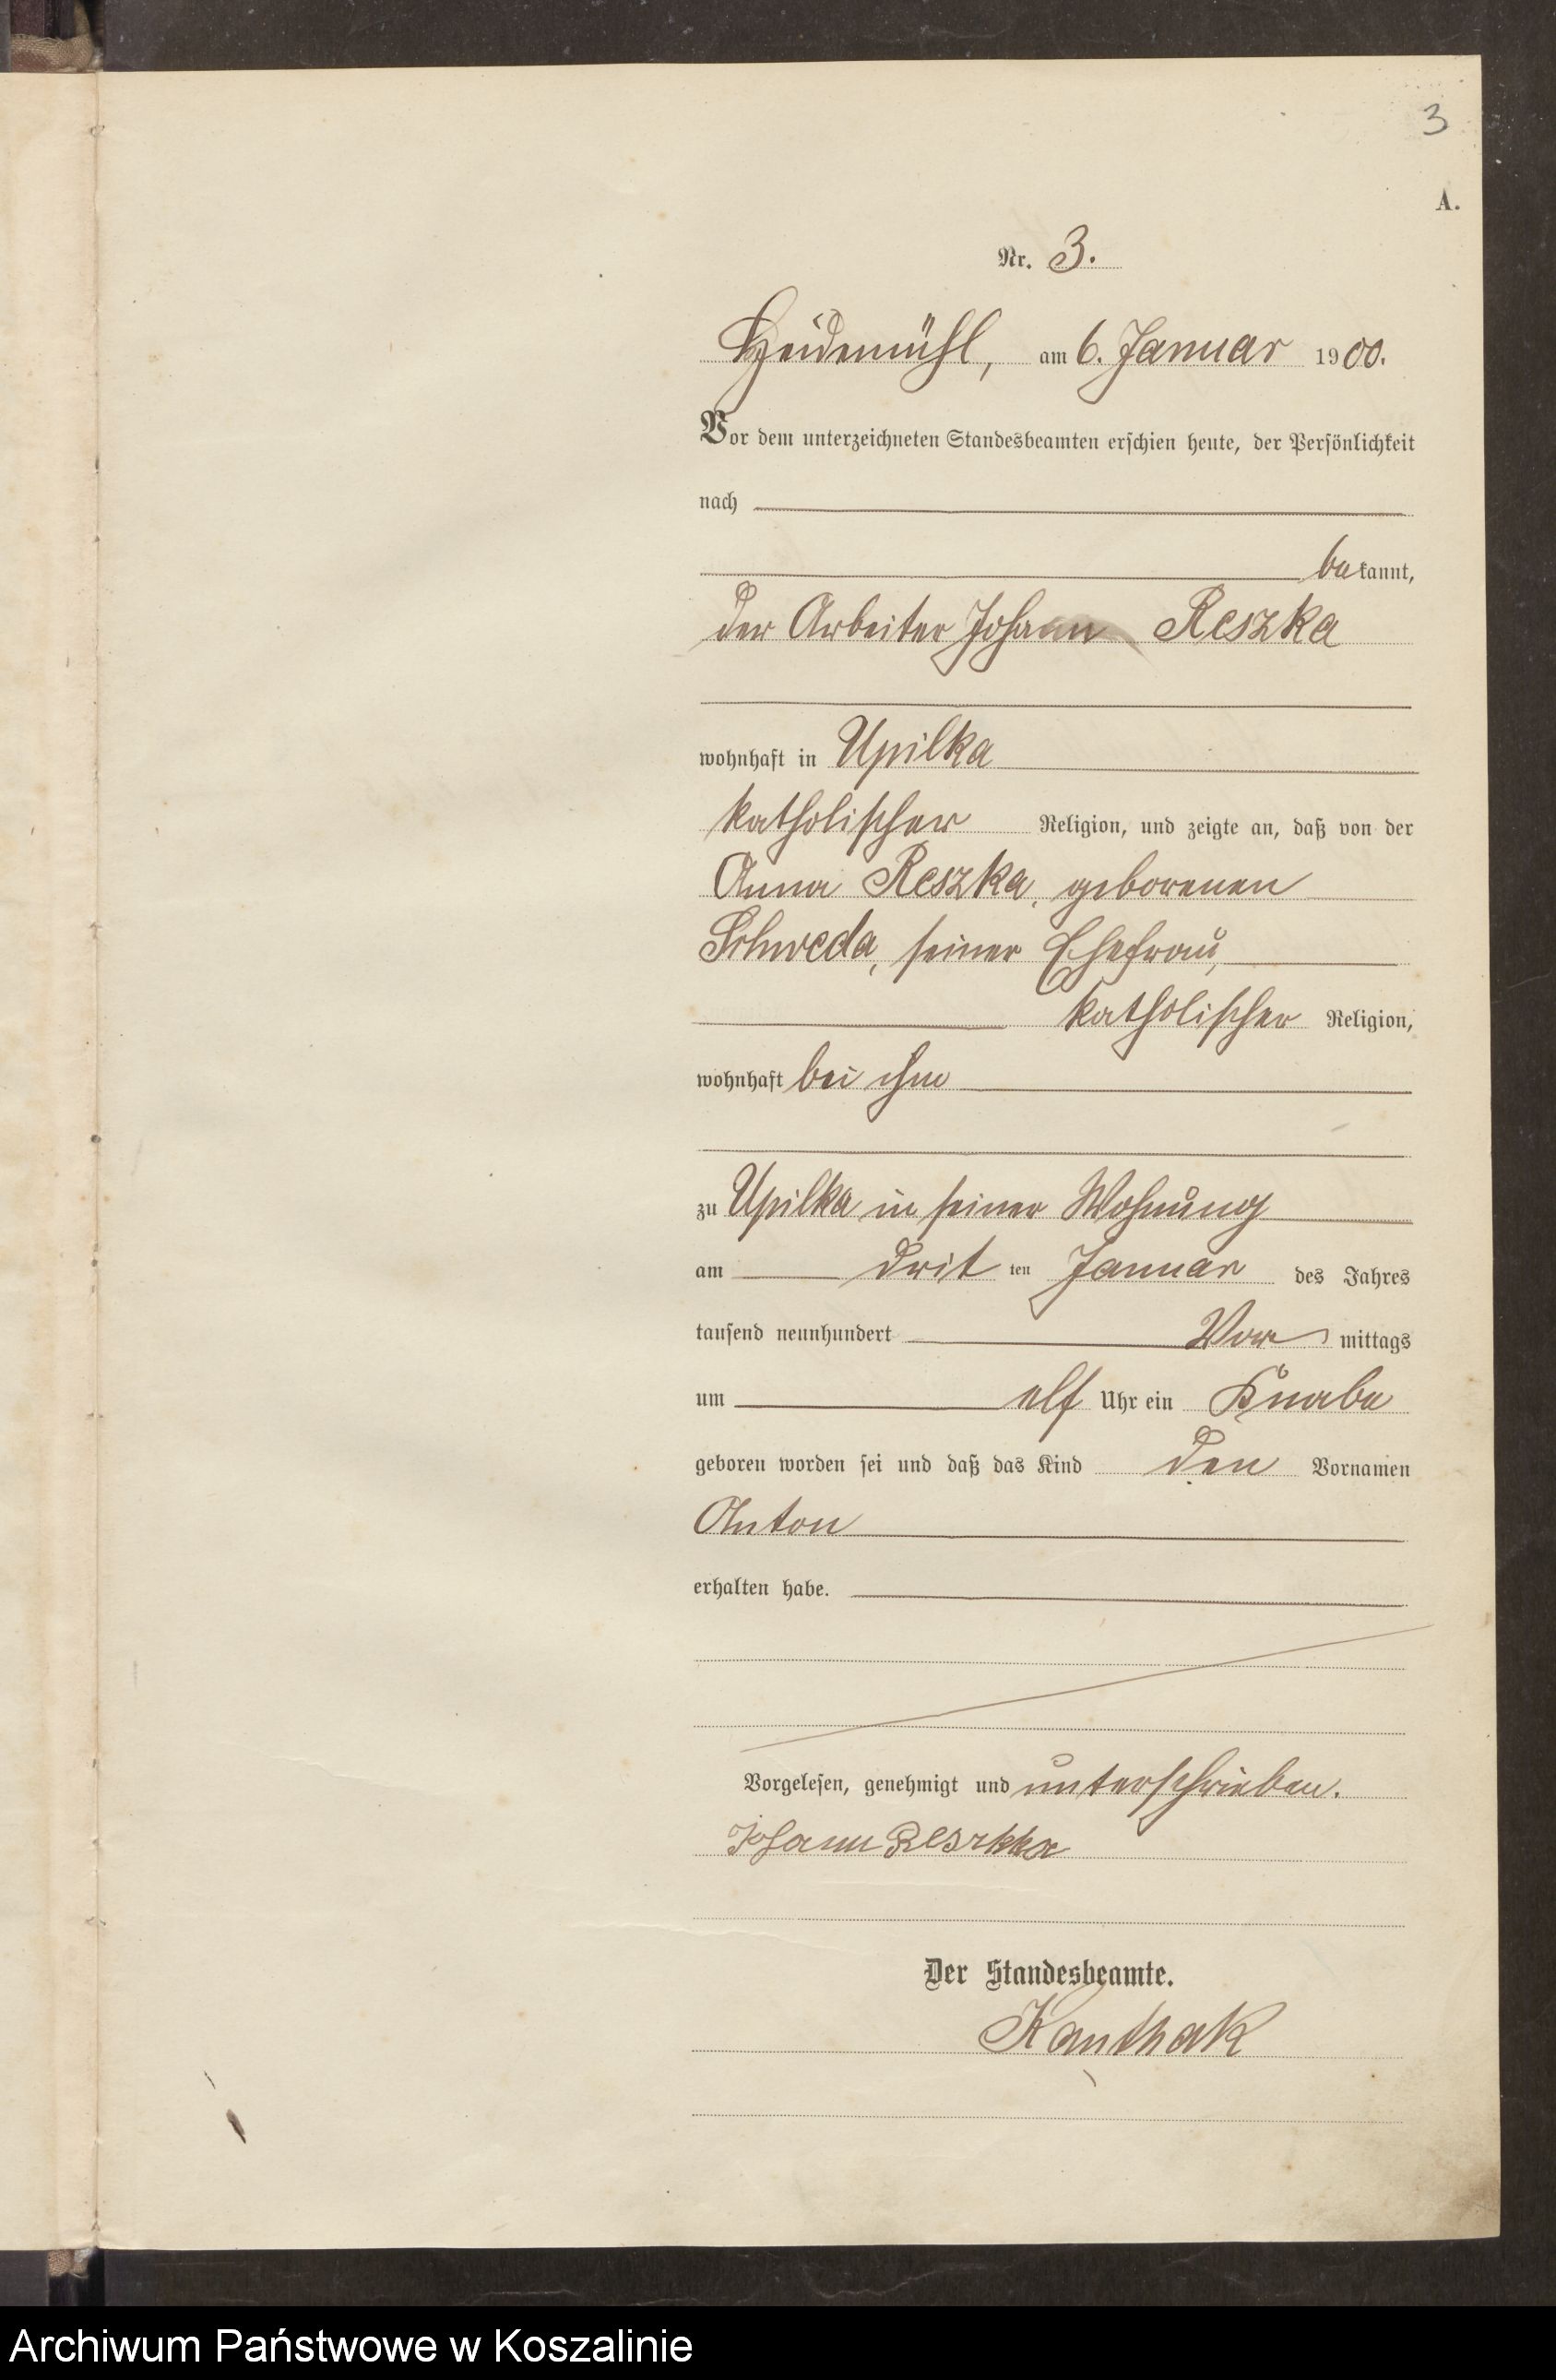 3
A.
Nr. 3.
Heidemühl, am 6. Januar 1900.
Vor dem unterzeichneten Standesbeamten erschien heute, der Persönlichkeit
nach
bekannt,
der Arbeiter Johann Reszka
wohnhaft in Upilka
katholischer Religion, und zeigte an, daß von der
Anna Reszka, geborenen
Schweda, seiner Ehefrau,
katholischer Religion,
wohnhaft bei ihm
zu Upilka in seiner Wohnung
am dritten Januar des Jahres
tausend neunhundert Vormittags
um elf Uhr ein Knabe
geboren worden sei und daß das Kind den Vornamen
Anton
erhalten habe.
Vorgelesen, genehmigt und unterschrieben.
Johann Reszka
Der Standesbeamte.
Kanthak
Archiwum Państwowe w Koszalinie